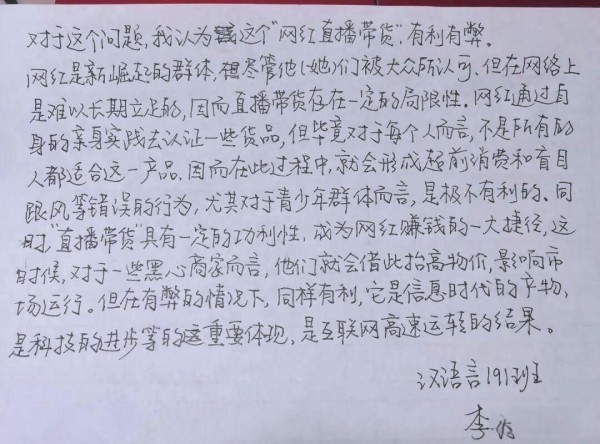 对于这个问题,我认为这个“网红直播带货”,有利有弊。
网红是新崛起的群体,想尽管他(她)们被大众所认可,但在网络上
是难以长期立足的,因而直播带货存在一定的局限性。网红通过自
身的亲身实践去认证一些货品,但毕竟对于每个人而言,不是所有的
人都适合这一产品。因而在此过程中,就会形成超前消费和盲目
跟风等错误的行为,尤其对于青少年群体而言,是极不有利的。同
时“直播带货”具有一定的功利性,成为网红赚钱的一大捷径,这
时候,对于一些黑心商家而言,他们就会借此抬高物价,影响市
场运行。但在有弊的情况下,同样有利,它是信息时代的产物,
是科技的进步等的这重要体现,是互联网高速运转的结果。
汉语言191班
李